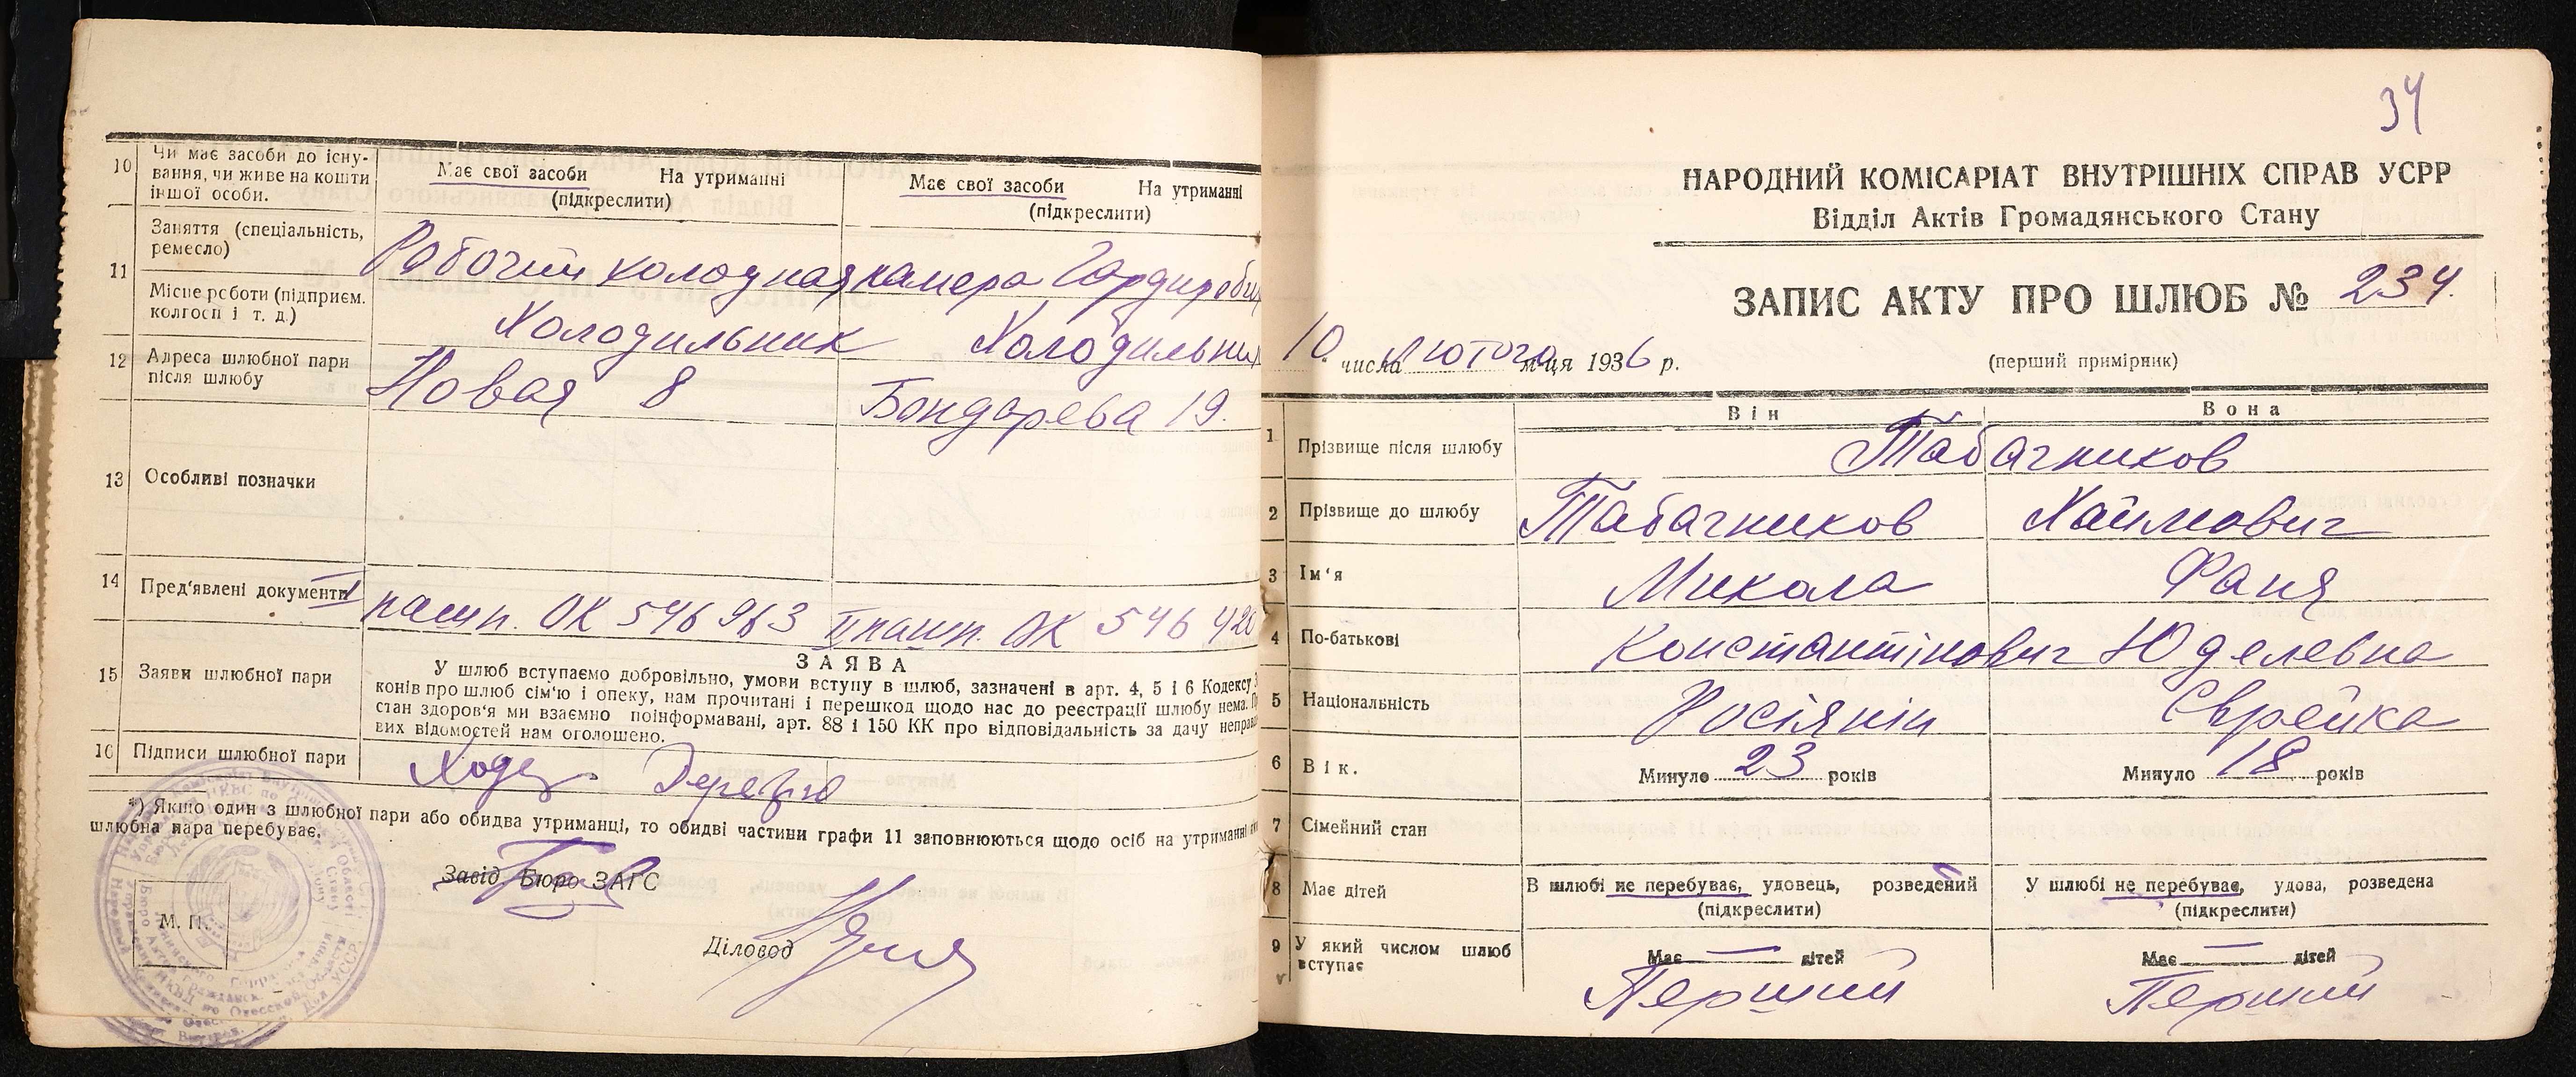 10 Чи має засоби до існу-
вання, чи живе на кошти
іншої особи.
Має свої засоби На утриманні
(підкреслити)
Має свої засоби На утриманні
(підкреслити)
11 Заняття (спеціальність,
ремесло)
Рабочий холодная камера
Місце роботи (підприєм.
колгосп і т. д.)
Холодильник Холодильник
12 Адреса шлюбної пари
після шлюбу
Новая 8 Бондарева 19.
13 Особливі позначки
14 Пред'явлені документи
I пашп. ОК 546 963 II пашп. ОК 546 420
15 Заяви шлюбної пари
ЗАЯВА
У шлюб вступаємо добровільно, умови вступу в шлюб, зазначені в арт. 4, 5 і 6 Кодексу
конів про шлюб сім'ю і опеку, нам прочитані і перешкод щодо нас до реєстрації шлюбу нема.
стан здоров'я ми взаємно поінформавані, арт. 88 і 150 КК про відповідальність за дачу неправ
вих відомостей нам оголошено.
16 Підписи шлюбної пари
*) Якщо один з шлюбної пари або обидва утриманці, то обидві частини графи 11 заповнюються щодо осіб на утриманні
шлюбна пара перебуває.
Завід Бюро ЗАГС
М. П.
Діловод
34
НАРОДНИЙ КОМІСАРІАТ ВНУТРІШНІХ СПРАВ УСРР
Відділ Актів Громадянського Стану
ЗАПИС АКТУ ПРО ШЛЮБ № 234.
10 числа лютого м-ця 1936 р.
(перший примірник)
Він Вона
1 Прізвище після шлюбу Табачников
2 Прізвище до шлюбу Табачников Хаймович
3 Ім'я Микола Фаня
4 По-батькові Константінович Юделевна
5 Національність Росіянін Єврейка
6 Вік. Минуло 23 років Минуло 18 років
7 Сімейний стан
8 Має дітей
В шлюбі не перебуває, удовець, розведений
(підкреслити)
У шлюбі не перебуває, удова, розведена
(підкреслити)
9 У який числом шлюб
вступає
Має — дітей Має — дітей
Перший Перший